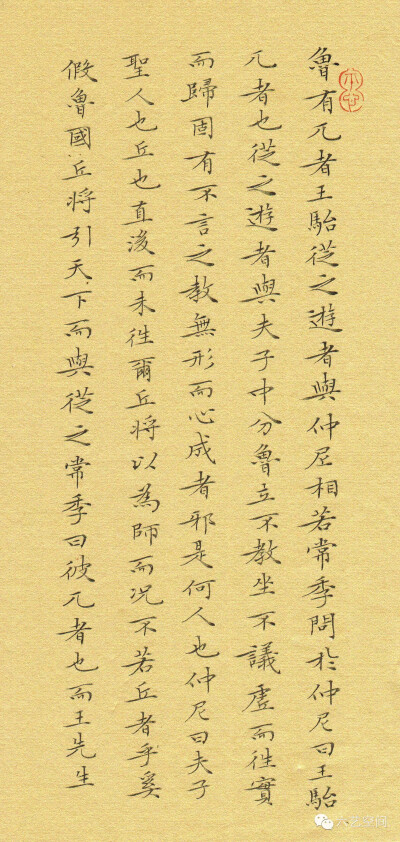 魯有兀者王駘從之遊者與仲尼相若常季問於仲尼曰王駘
兀者也從之遊者與夫子中分魯立不教坐不議虛而往實
而歸固有不言之教無形而心成者邪是何人也仲尼曰夫子
聖人也丘也直後而未往爾丘將以為師而况不若丘者乎奚
假魯國丘將引天下而與從之常季曰彼兀者也而王先生